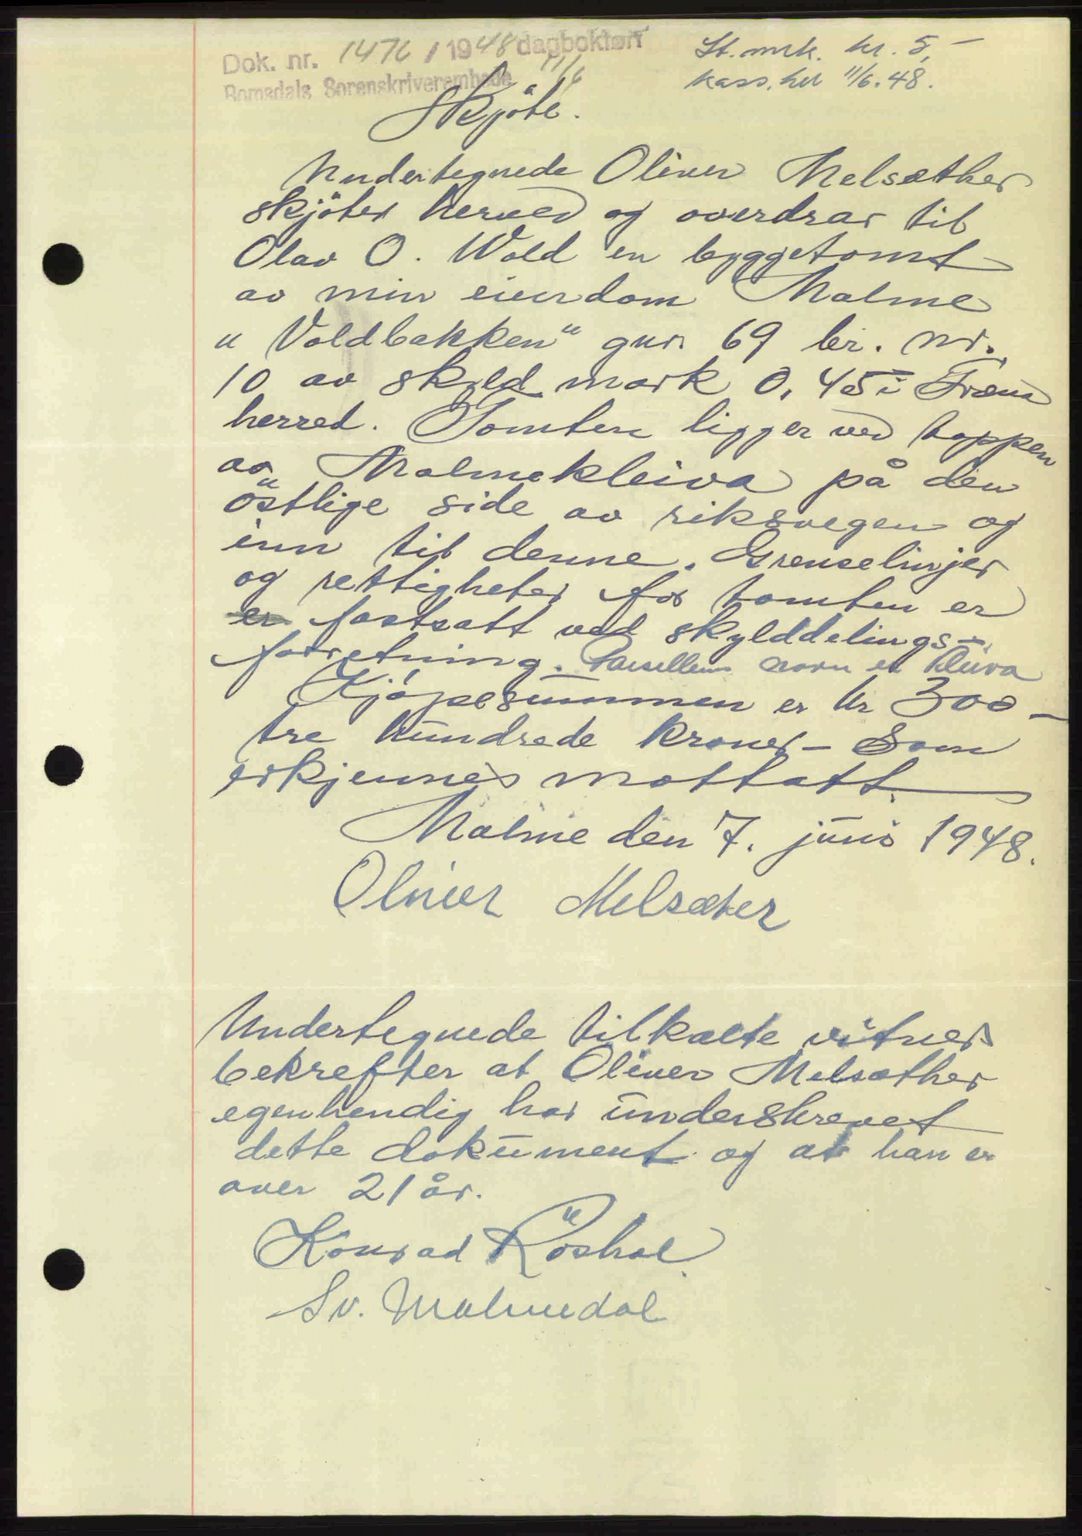 Dok. nr. 1476 / 1948 dagbokført
11/6
Romsdals Sorenskriverembede
St. mrk. kr. 5,-
kass. her 11/6.48.
Skjöte.
Undertegnede Oliver Melsæther
skjöter herved og overdrar til
Olav O. Wold en byggetomt
av min eiendom Malme
"Voldbakken" gnr. 69 br. nr.
10 av skyld mark 0,45 i Fræna
herred. Tomten ligger ved toppen
av Malmekleiva på den
östlige side av riksvegen og
inn til denne. Grenselinjer
og rettigheter for tomten er
er fastsatt ved skylddelings-
forretning. Parsellens navn er Kleiva
Kjöpesummen er kr 300 -
tre hundrede kroner - som
erkjennes mottatt.
Malme den 7. juni 1948.
Oliver Melsæter
Undertegnede tilkalte vitner
bekrefter at Oliver Melsæther
egenhendig har underskrevet
dette dokument og at han er
over 21 år.
Konrad Röshol
Sv. Malmedal